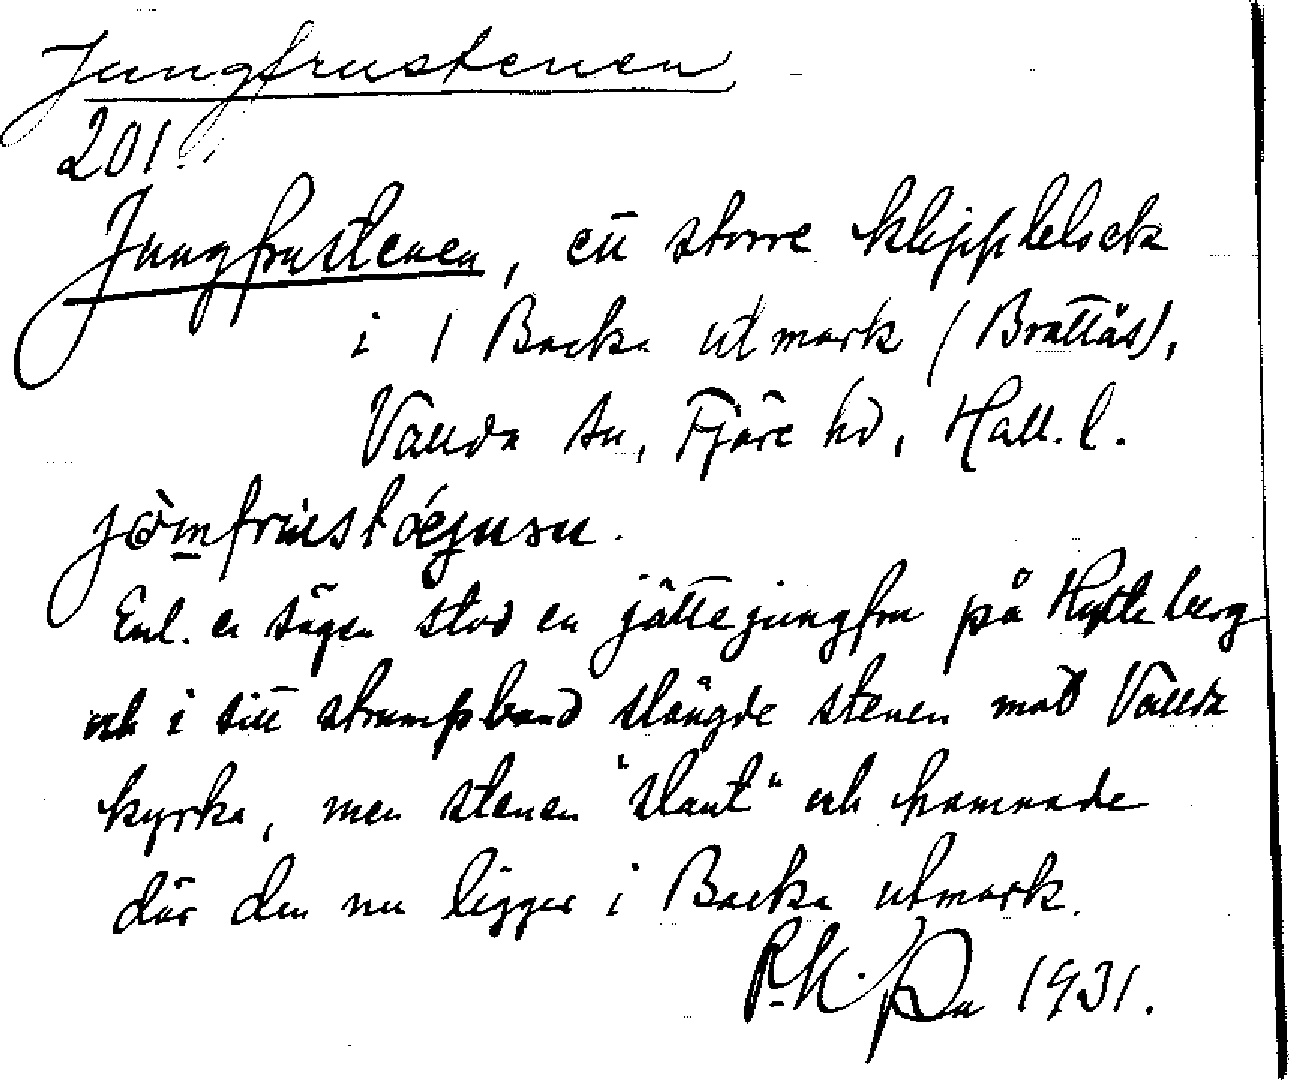 Jungfrustenen
201.
Jungfrustenen, ett större klippblock
i 1 Backa utmark (Brattås),
Vallda sn, Fjäre hd, Hall. l.
Enl. en sägen stod en jättejungfru på berg
och i sitt strumpband slängde stenen mot Vallda
kyrka, men stenen "slant" och hamnade
där den nu ligger i Backa utmark.
1931.